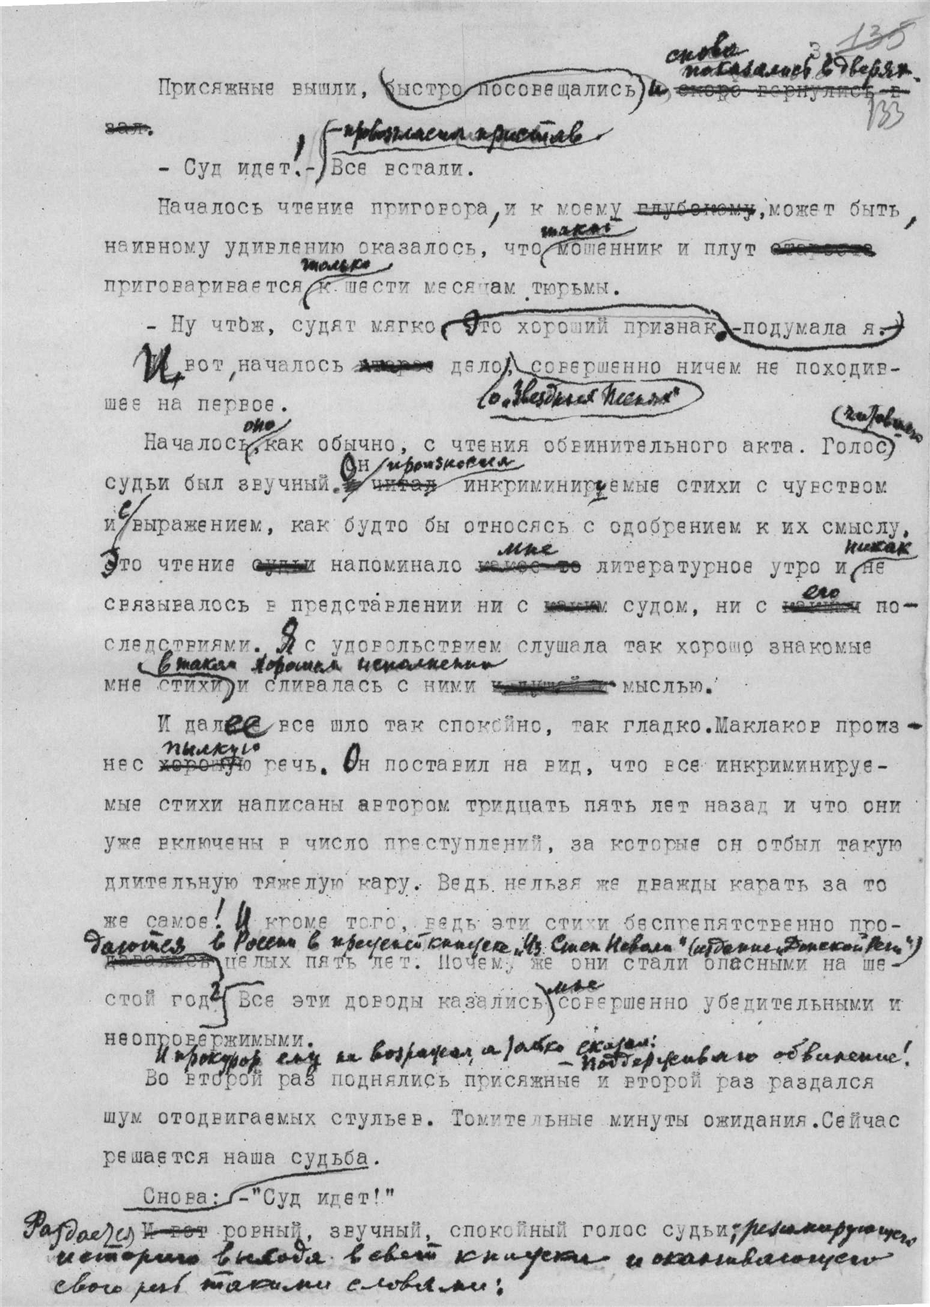 3
135
133
снова
показались в дверях.
Присяжные вышли, быстро посовещались и скоро вернулись в
зал.
провозгласил пристав
- Суд идет! - Все встали.
Началось чтение приговора, и к моему глубокому, может быть,
такой
наивному удивлению оказалось, что мошенник и плут
только
приговаривается к шести месяцам тюрьмы.
- Ну чтож, судят мягко. Это хороший признак, -подумала я.
И вот, началось второе дело, совершенно ничем не походив-
о „Звездныя Песняя“
шее на первое.
оно читавшего
Началось, как обычно, с чтения обвинительного акта. Голос
Он произносил
судьи был звучный. И читал инкриминируемые стихи с чувством
с
и выражением, как будто бы относясь с одобрением к их смыслу.
мне никак
Это чтение судьи напоминало какое-то литературное утро и не
его
связывалось в представлении ни с каким судом, ни с какими по-
следствиями. Я с удовольствием слушала так хорошо знакомые
в таком хорошем исполнении
мне стихи и сливалась с ними и душой и мыслью.
И далее все шло так спокойно, так гладко. Маклаков произ-
пылкую
нес хорошую речь. Он поставил на вид, что все инкриминируе-
мые стихи написаны автором тридцать пять лет назад и что они
уже включены в число преступлений, за которые он отбыл такую
длительную тяжелую кару. Ведь нельзя же дважды карать за то
же самое! И кроме того, ведь эти стихи беспрепятственно про-
даются в России в прежней книжке „Из Стен Неволи“ (издание „Донской Речи“)
давались целых пять лет. Почему же они стали опасными на ше-
мне
стой год? Все эти доводы казались совершенно убедительными и
неопровержимыми.
И прокурор ему не возражал, а только сказал:
- Поддерживаю обвинение!
Во второй раз поднялись присяжные и второй раз раздался
шум отодвигаемых стульев. Томительные минуты ожидания. Сейчас
решается наша судьба.
Снова: -"Суд идет!"
Раздается И вот ровный, звучный, спокойный голос судьи, резюмирующего
историю выхода в свет книжки и оканчивающего
свою речь такими словами: